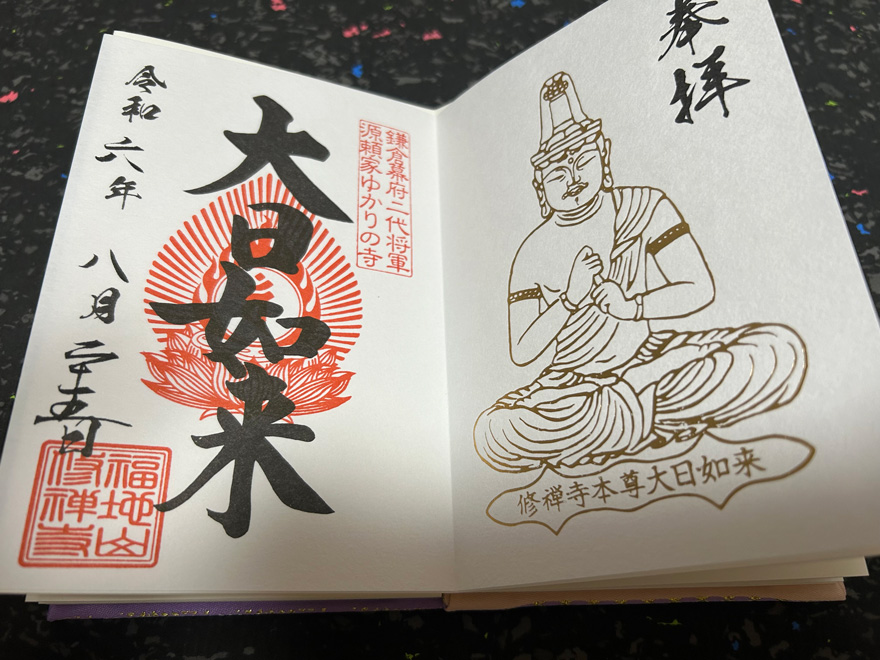 奉拝
修禅寺本尊大日如来
鎌倉幕府二代将軍
源頼家ゆかりの寺
大日如来
令和六年 八月二十五日
福地山
修禅寺